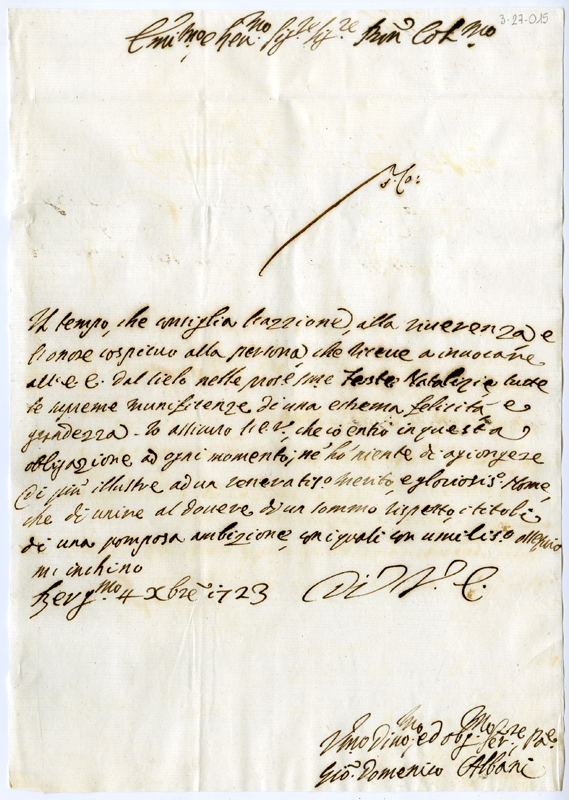 3-27-015
Em.mo e Rev.mo Sig.re Sig.re Pron Col.mo
Il tempo, che consiglia l'azzione, alla riverenza, e
l'onore cospicuo alla persona, che riceve a invocare
all'E. E. dal Cielo nelle pross.me Feste Natalizie tutte
le supreme munificenze di una estrema felicità e
grandezza. Io assicuro l'E.V., che io entro in questa
obligazione ad ogni momento, ne ho niente di agiongere
di più illustre ad un venerat.mo merito, e glorios.o Nome,
che di unire al dovere di un sommo rispetto, i titoli
di una pomposa ambizione, con i quali con umilis.o ossequio
mi inchino
Berg.mo 4 Xbre 1723 Di V. E.
Um.mo Divo.mo ed obg.mo Ser.re
Gio. Domenico Albani